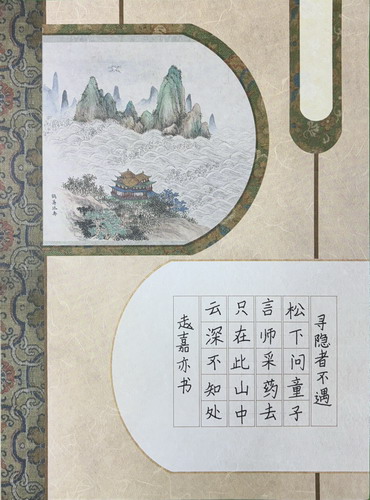 寻隐者不遇
松下问童子
言师采药去
只在此山中
云深不知处
赵嘉亦书